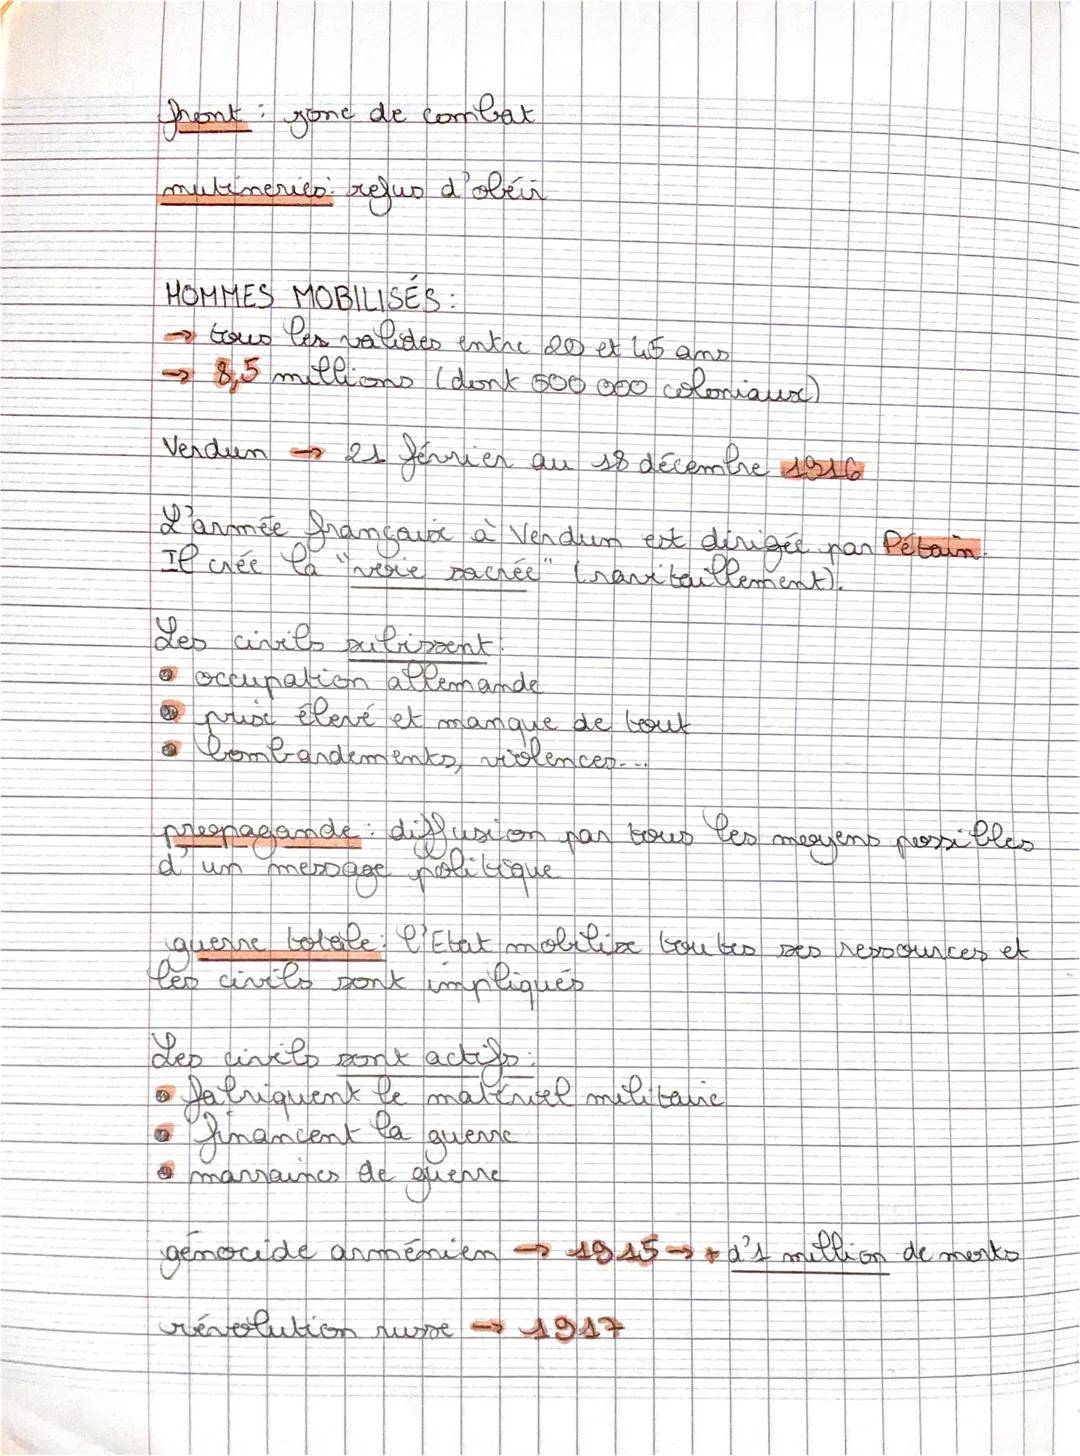 front : zone de combat
mutineries : refus d'obéir
HOMMES MOBILISÉS :
→ tous les valides entre 20 et 45 ans
→ 8,5 millions (dont 600 000 coloniaux)
Verdun → 21 février au 18 décembre 1916
L'armée française à Verdun est dirigée par Pétain.
Il crée la "voie sacrée" (ravitaillement).
Les civils subissent :
• occupation allemande
• prix élevé et manque de tout
• bombardements, violences...
propagande : diffusion par tous les moyens possibles
d'un message politique
guerre totale : l'Etat mobilise toutes ses ressources et
les civils sont impliqués
Les civils sont actifs :
• fabriquent le matériel militaire
• financent la guerre
• marraines de guerre
génocide arménien → 1915 → + d'1 million de morts
révolution russe → 1917